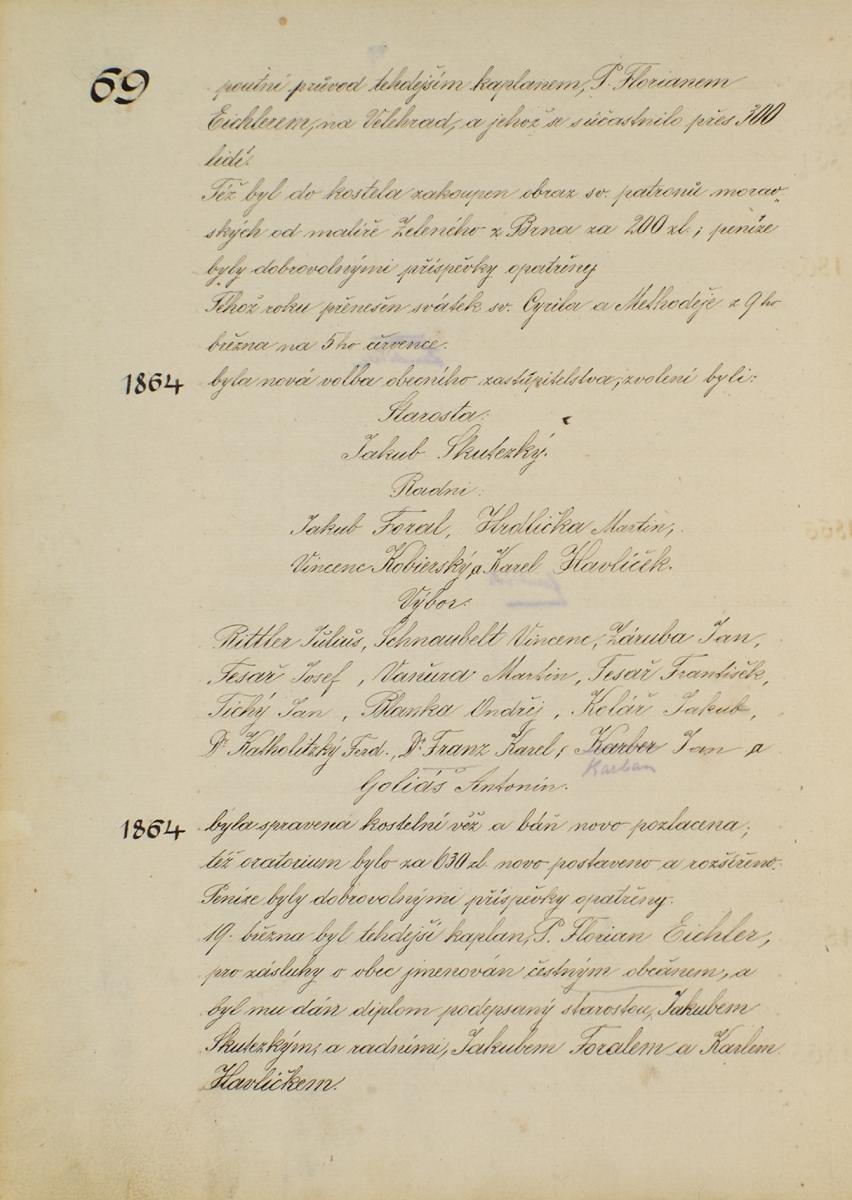 69
poutní průvod tehdejším kaplanem, P. Florianem
Eichlerem, na Velehrad, a jehož se súčastnilo přes 300
lidí.
Též byl do kostela zakoupen obraz sv. patronů morav-
ských od malíře Zeleného z Brna za 200 zl.; peníze
byly dobrovolnými příspěvky opatřeny
Téhož roku přenešen svátek sv. Cyrila a Methoděje z 9ho
března na 5ho července.
1864 byla nová volba obecního zastupitelstva, zvoleni byli:
Starosta:
Jakub Skutezký.
Radní:
Jakub Foral, Hrdlička Martin,
Vincenc Kobierský, a Karel Havlíček.
Výbor:
Rittler Julius, Schnaubelt Vincenc, Záruba Jan,
Tesař Josef, Vaňura Martin, Tesař František,
Tichý Jan, Blanka Ondřej, Kolář Jakub,
Dr Katholitzký Ferd., Dr Franz Karel, Karber Jan a
Karban
Goliáš Antonín.
1864 byla spravena kostelní věž a báň novo pozlacena;
též oratorium bylo za 630 zl. novo postaveno a rozšířeno.
Peníze byly dobrovolnými příspěvky opatřeny.
19. března byl tehdejší kaplan, P. Florian Eichler,
pro zásluhy o obec jmenován čestným občanem, a
byl mu dán diplom podepsaný starostou, Jakubem
Skutezkým, a radními, Jakubem Foralem a Karlem
Havlíčkem.